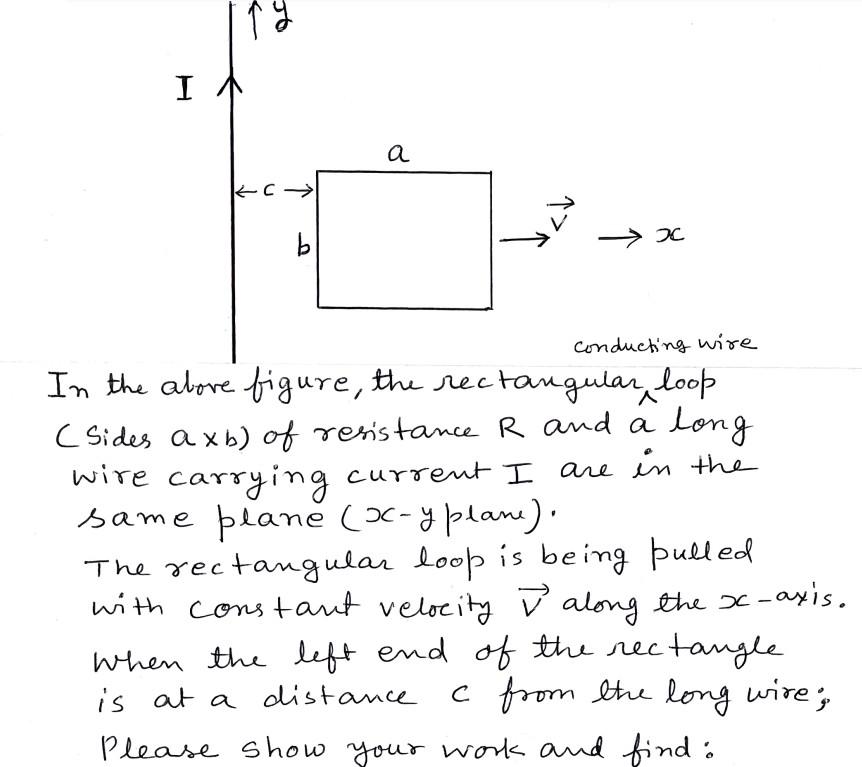 ↑ y
I
a
← c →
b
→ V → x
conducting wire
In the above figure, the rectangular ^ loop
(Sides a x b) of resistance R and a long
wire carrying current I are in the
same plane (x-y plane).
The rectangular loop is being pulled
with constant velocity V⃗ along the x-axis.
When the left end of the rectangle
is at a distance c from the long wire;
Please show your work and find: